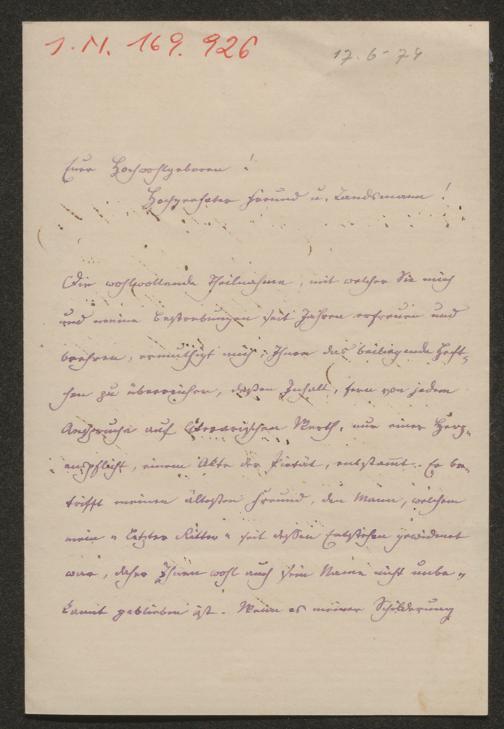 J. N. 169.926
17-6-74
Euer Hochwohlgeboren!
Hochverehrter Freund u. Landsmann!
Die wohlwollende Theilnahme, mit welcher Sie mich
und meine Bestrebungen seit Jahren erfreuen und
beehren, ermuthigt mich, Ihnen das beiliegende Heft-
chen zu überreichen, dessen Inhalt, fern von jedem
Anspruche auf literarischen Werth, nur einer Herz-
enspflicht, einem Akte der Pietät, entstammt. Er be-
trifft meinen ältesten Freund, den Mann, welchem
mein „letzter Ritter“ seit dessen Entstehen gewidmet
war, daher Ihnen wohl auch sein Name nicht unbe-
kannt geblieben ist. Wenn es meiner Schilderung